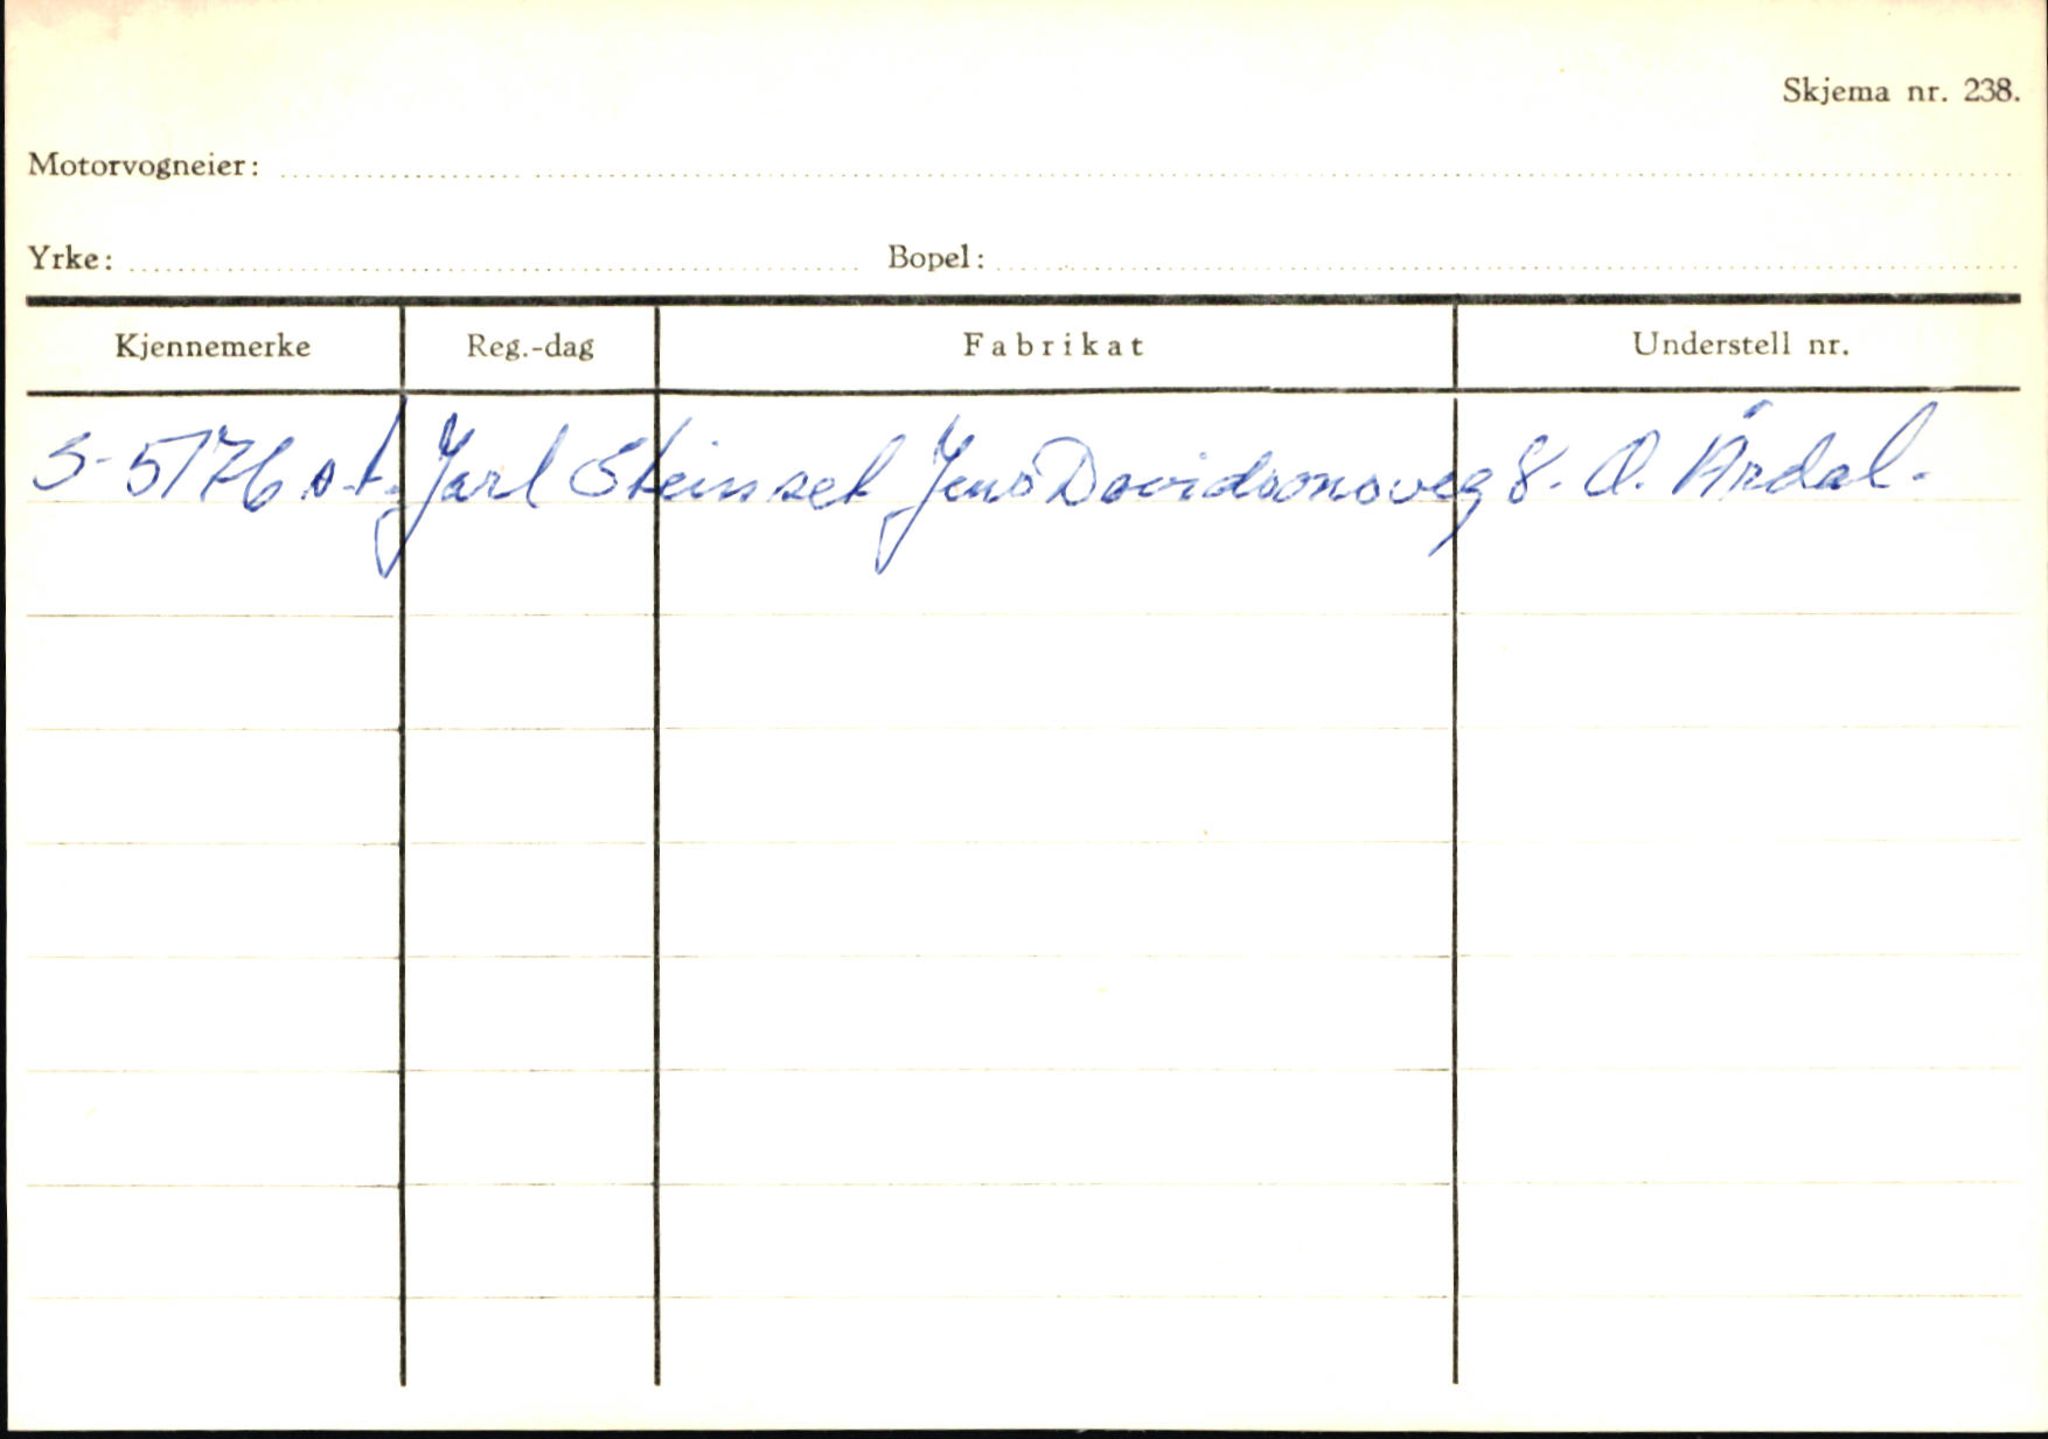 Skjema nr. 238.
Motorvogneier:
Yrke: Bopel:
Kjennemerke Reg.-dag Fabrikat Understell nr.
S-5176 s.t. Jarl Steinset Jens Davidsonsveg 8. Ø. Årdal.